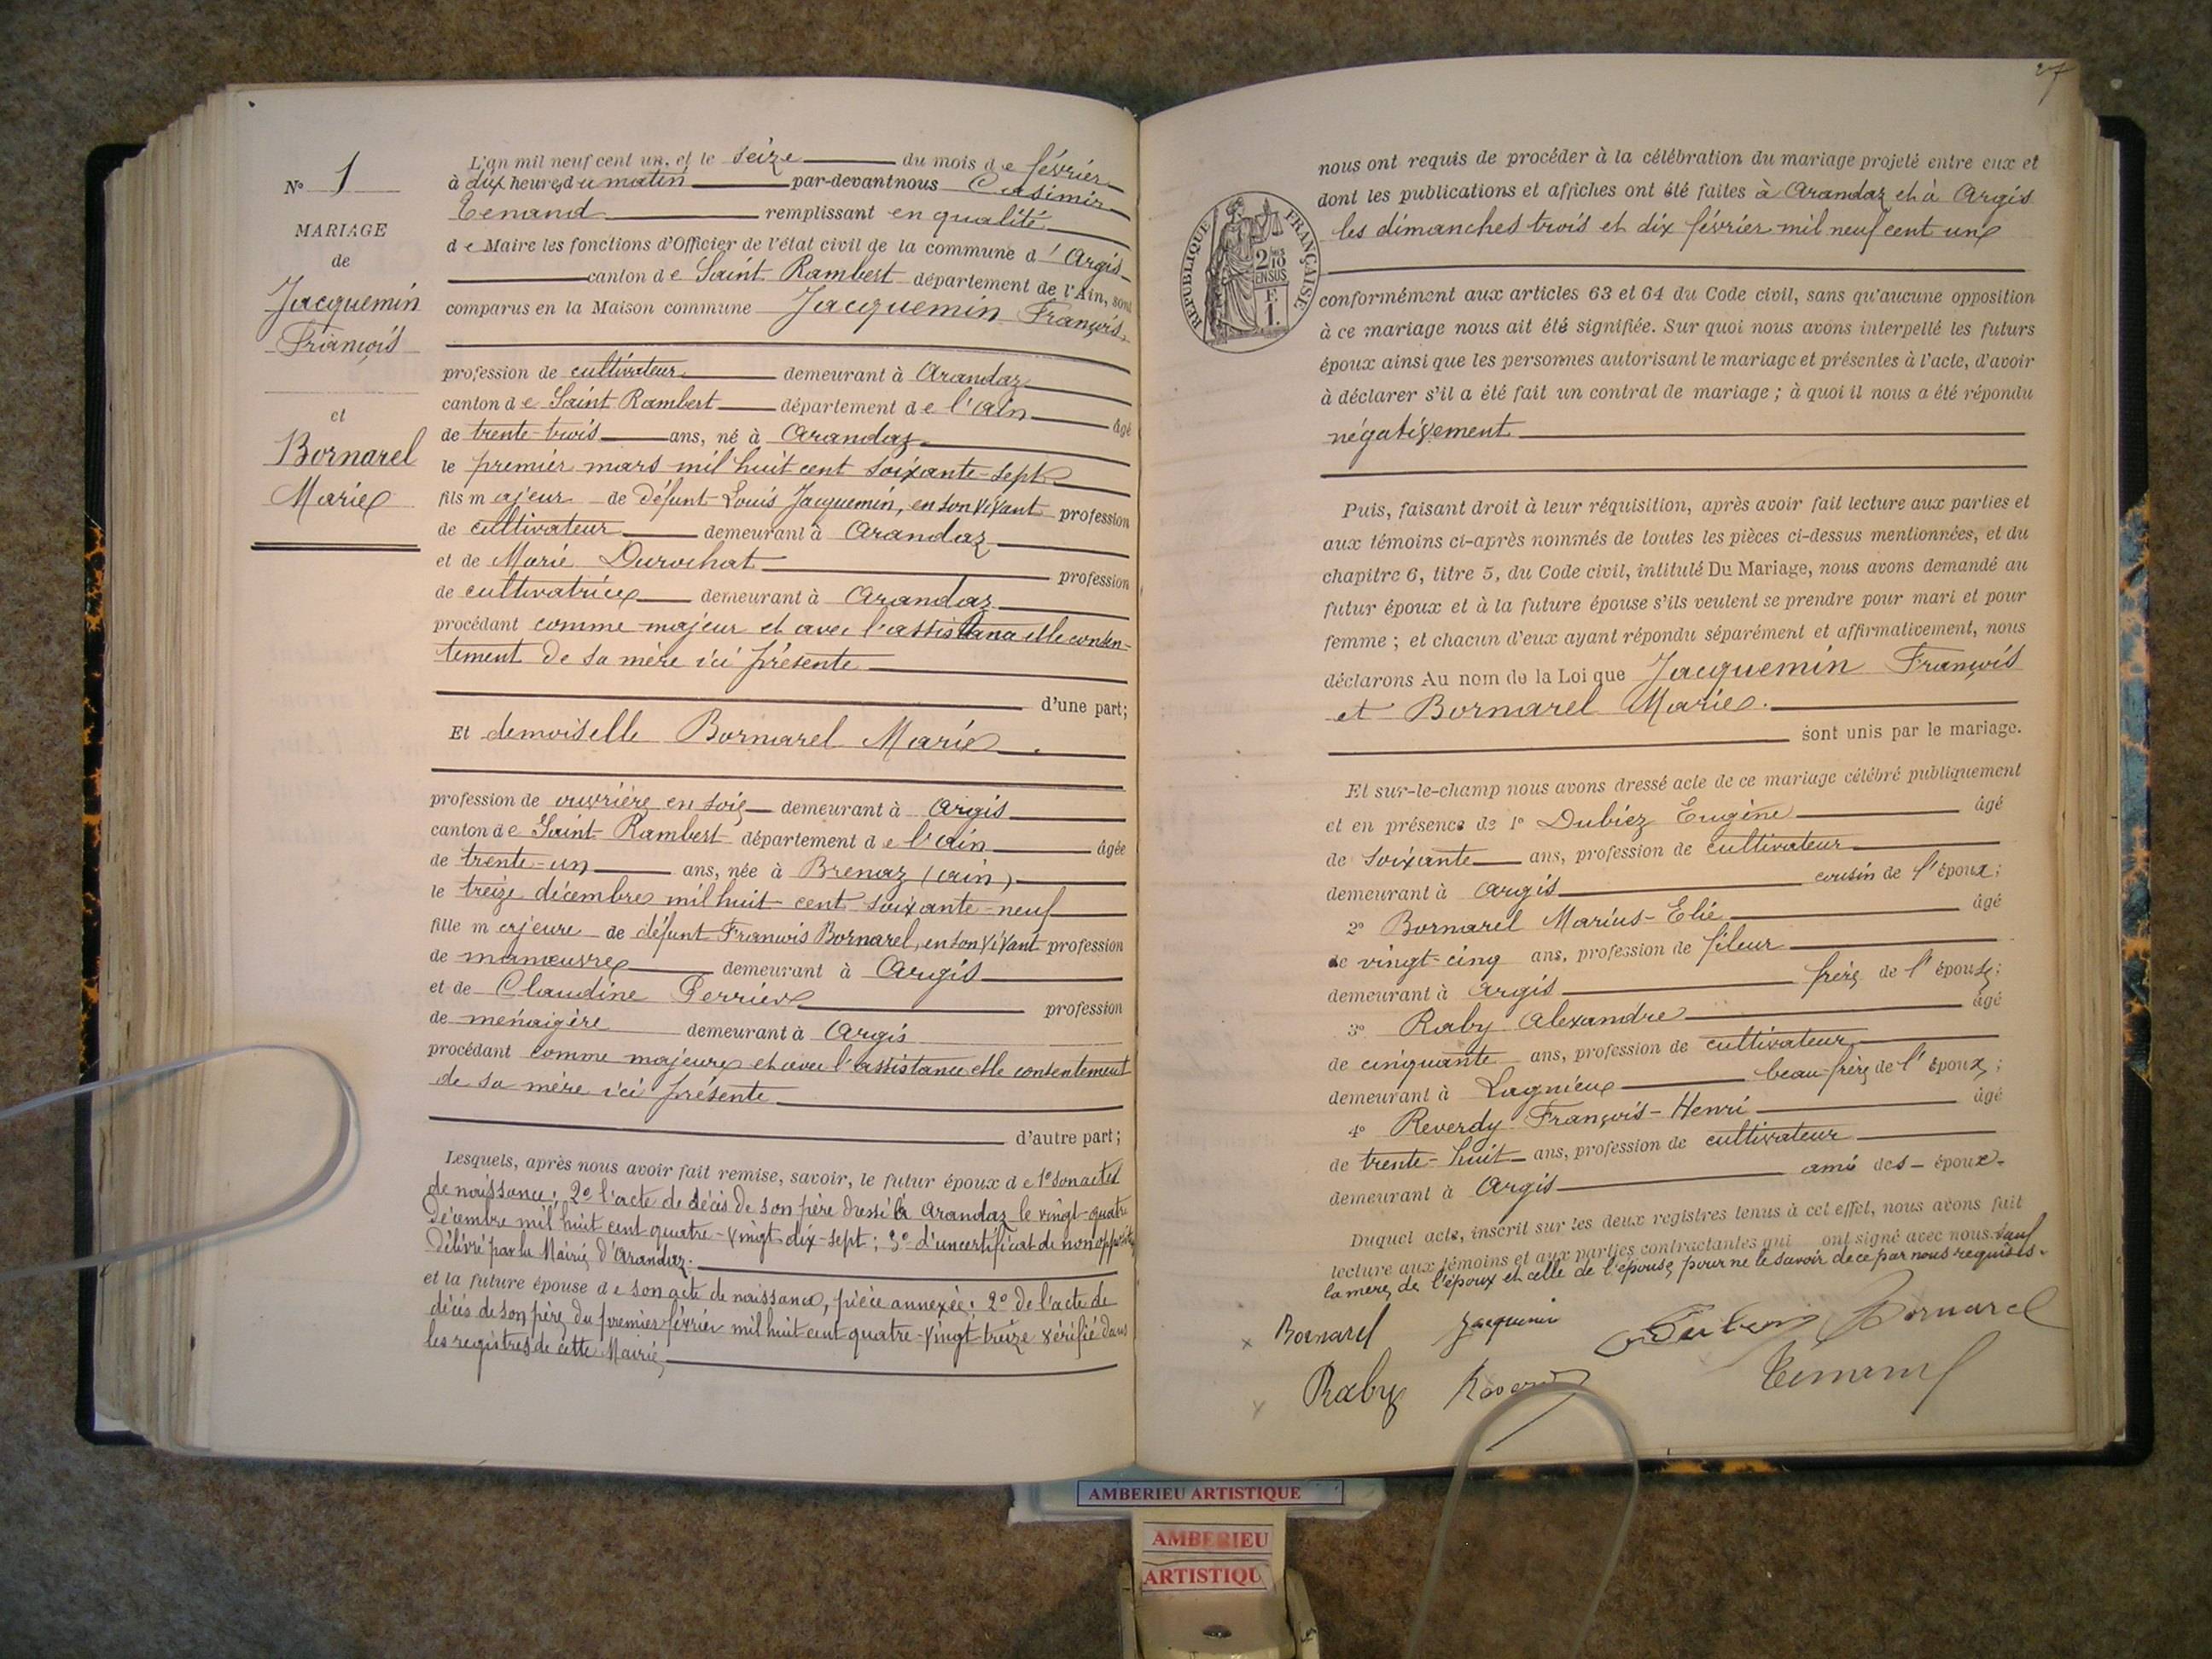 N° 1
MARIAGE
de
Jacquemin
François
et
Bornarel
Marie
L'an mil neuf cent un, et le seize du mois de février
à dix heures du matin par-devant nous Casimir
Tenand remplissant en qualité
de Maire les fonctions d'Officier de l'état civil de la commune d'Argis
canton de Saint Rambert département de l'Ain, sont
comparus en la Maison commune Jacquemin François
profession de cultivateur demeurant à Arandaz
canton de Saint Rambert département de l'ain âgé
de trente-trois ans, né à Arandaz
le premier mars mil huit cent soixante-sept
fils majeur de défunt Louis Jacquemin, en son vivant profession
de cultivateur demeurant à Arandaz
et de Marie Durochat profession
de cultivatrice demeurant à Arandaz
procédant comme majeur et avec l'assistance et le consen-
tement de sa mère ici présente
d'une part;
Et demoiselle Bornarel Marie.
profession de ouvrière en soie demeurant à Argis
canton de Saint-Rambert département de l'ain âgée
de trente-un ans, née à Brenaz (ain)
le treize décembre mil huit cent soixante-neuf
fille majeure de défunt François Bornarel, en son vivant profession
de manœuvre demeurant à Argis
et de Claudine Perrier profession
de ménaigère demeurant à Argis
procédant comme majeure et avec l'assistance et le consentement
de sa mère ici présente
d'autre part;
Lesquels, après nous avoir fait remise, savoir, le futur époux de 1° son acte
de naissance; 2° l'acte de décès de son père dressé à Arandaz le vingt-quatre
décembre mil huit cent quatre-vingt dix-sept; 3° d'un certificat de non opposition
délivré par la Mairie d'Arandaz.
et la future épouse de son acte de naissance, pièce annexée; 2° de l'acte de
décès de son père du premier février mil huit cent quatre-vingt treize vérifié dans
les registres de cette Mairie
27
RÉPUBLIQUE FRANÇAISE
2/10
EN SUS
1 F.
nous ont requis de procéder à la célébration du mariage projeté entre eux et
dont les publications et affiches ont été faites à Arandaz et à Argis
les dimanches trois et dix février mil neuf cent un
conformément aux articles 63 et 64 du Code civil, sans qu'aucune opposition
à ce mariage nous ait été signifiée. Sur quoi nous avons interpellé les futurs
époux ainsi que les personnes autorisant le mariage et présentes à l'acte, d'avoir
à déclarer s'il a été fait un contrat de mariage; à quoi il nous a été répondu
négativement
Puis, faisant droit à leur réquisition, après avoir fait lecture aux parties et
aux témoins ci-après nommés de toutes les pièces ci-dessus mentionnées, et du
chapitre 6, titre 5, du Code civil, intitulé Du Mariage, nous avons demandé au
futur époux et à la future épouse s'ils veulent se prendre pour mari et pour
femme; et chacun d'eux ayant répondu séparément et affirmativement, nous
déclarons Au nom de la Loi que Jacquemin François
et Bornarel Marie.
sont unis par le mariage.
Et sur-le-champ nous avons dressé acte de ce mariage célébré publiquement
et en présence de 1° Dubiez Eugène âgé
de soixante ans, profession de cultivateur
demeurant à Argis cousin de l'époux;
2° Bornarel Marius-Elie âgé
de vingt-cinq ans, profession de fileur
demeurant à Argis frère de l'épouse;
3° Raby Alexandre âgé
de cinquante ans, profession de cultivateur
demeurant à Lagnieu beau-frère de l'époux;
4° Reverdy François-Henri âgé
de trente-huit ans, profession de cultivateur
demeurant à Argis ami des époux.
Duquel acte, inscrit sur les deux registres tenus à cet effet, nous avons fait
lecture aux témoins et aux parties contractantes qui ont signé avec nous sauf
la mère de l'époux et celle de l'épouse pour ne le savoir de ce par nous requises.
Bornarel Jacquemin Bornarel
Raby Tenand
AMBERIEU ARTISTIQUE
AMBERIEU
ARTISTIQU